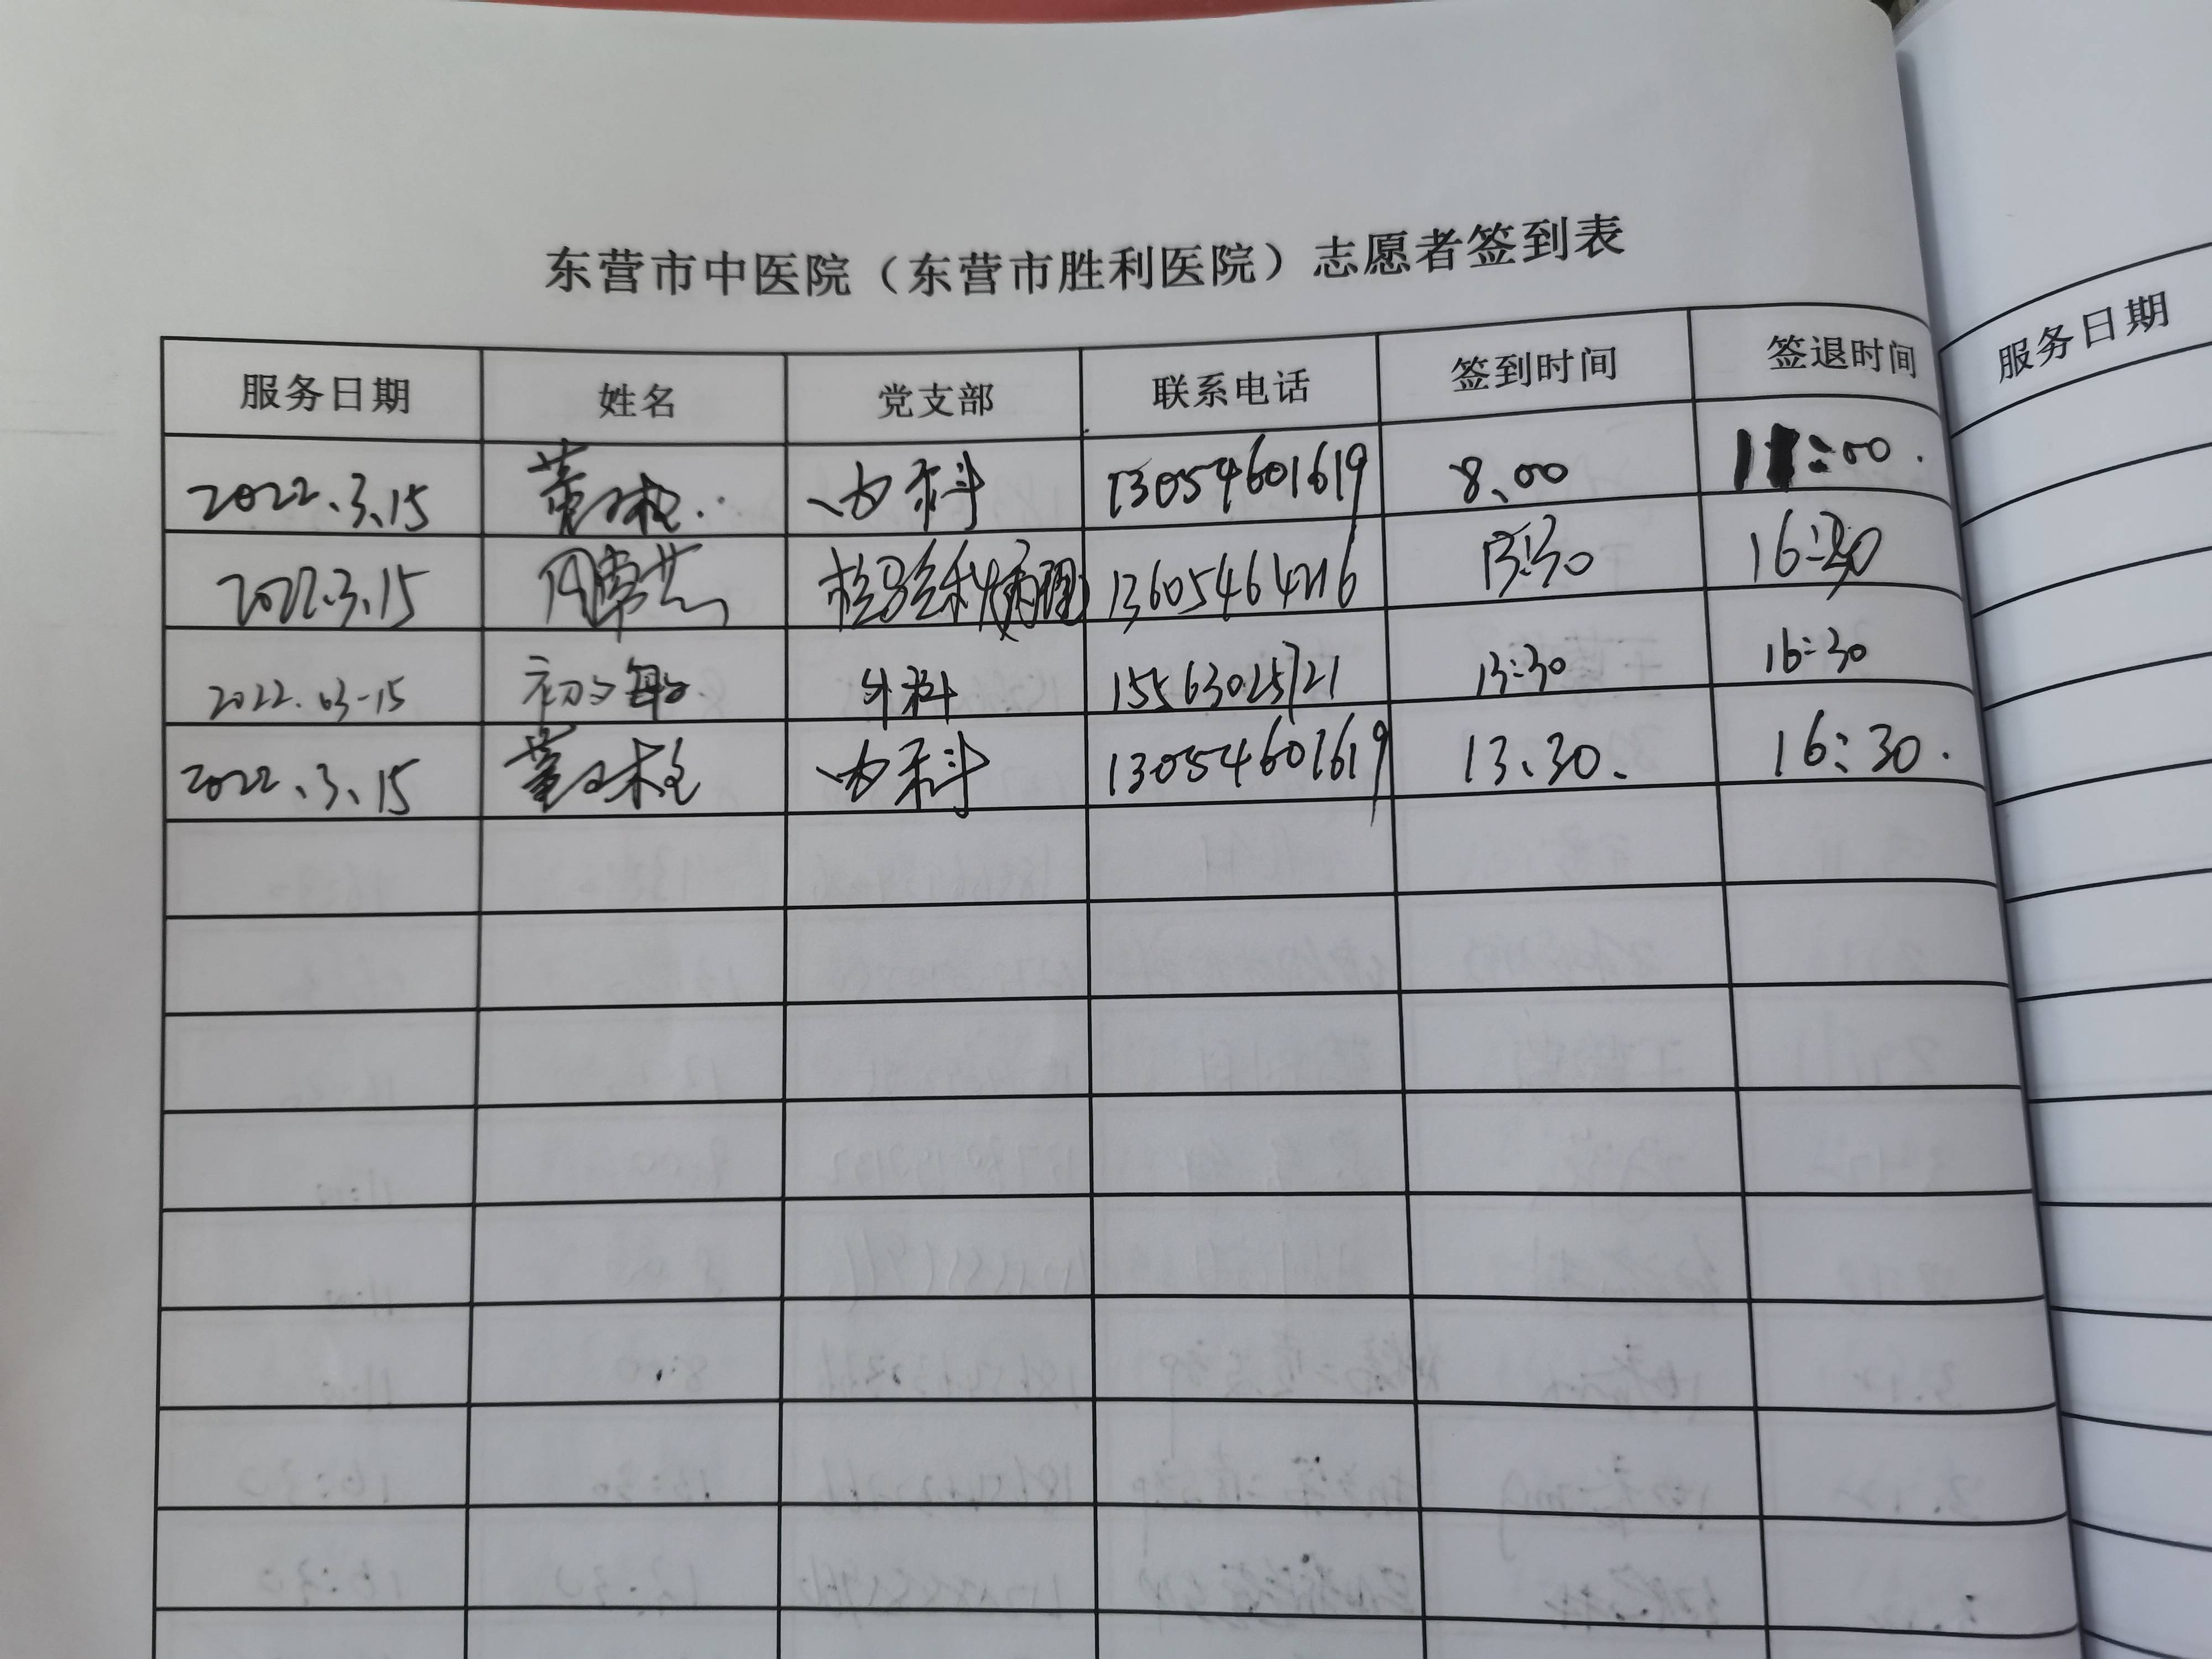 东营市中医院（东营市胜利医院）志愿者签到表
服务日期 姓名 党支部 联系电话 签到时间 签退时间
2022.3.15 内科 13054601619 8.00 11:00.
2022.3.15 检验科病理 13605464216 13:30 16:30
2022.03-15 初敏 外科 15563025721 13:30 16:30
2022.3.15 内科 13054601619 13.30. 16:30.
服务日期